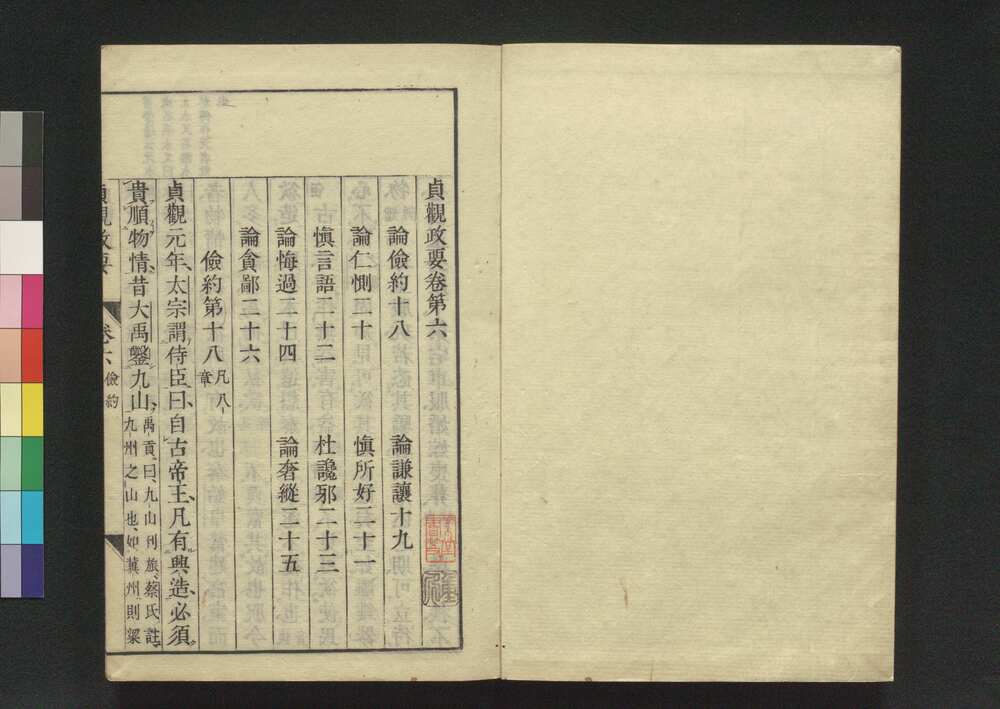 貞觀政要卷第六
論儉約十八 論謙讓十九
論仁惻二十 慎所好二十一
慎言語二十二 杜讒邪二十三
論悔過二十四 論奢縱二十五
論貪鄙二十六
儉約第十八 凡八章
貞觀元年太宗謂侍臣曰自古帝王凡有興造必須
貴順物情昔大禹鑿九山 禹貢曰九山刊旅蔡氏註
九州之山也如冀州則梁
貞觀政要 卷六 儉約